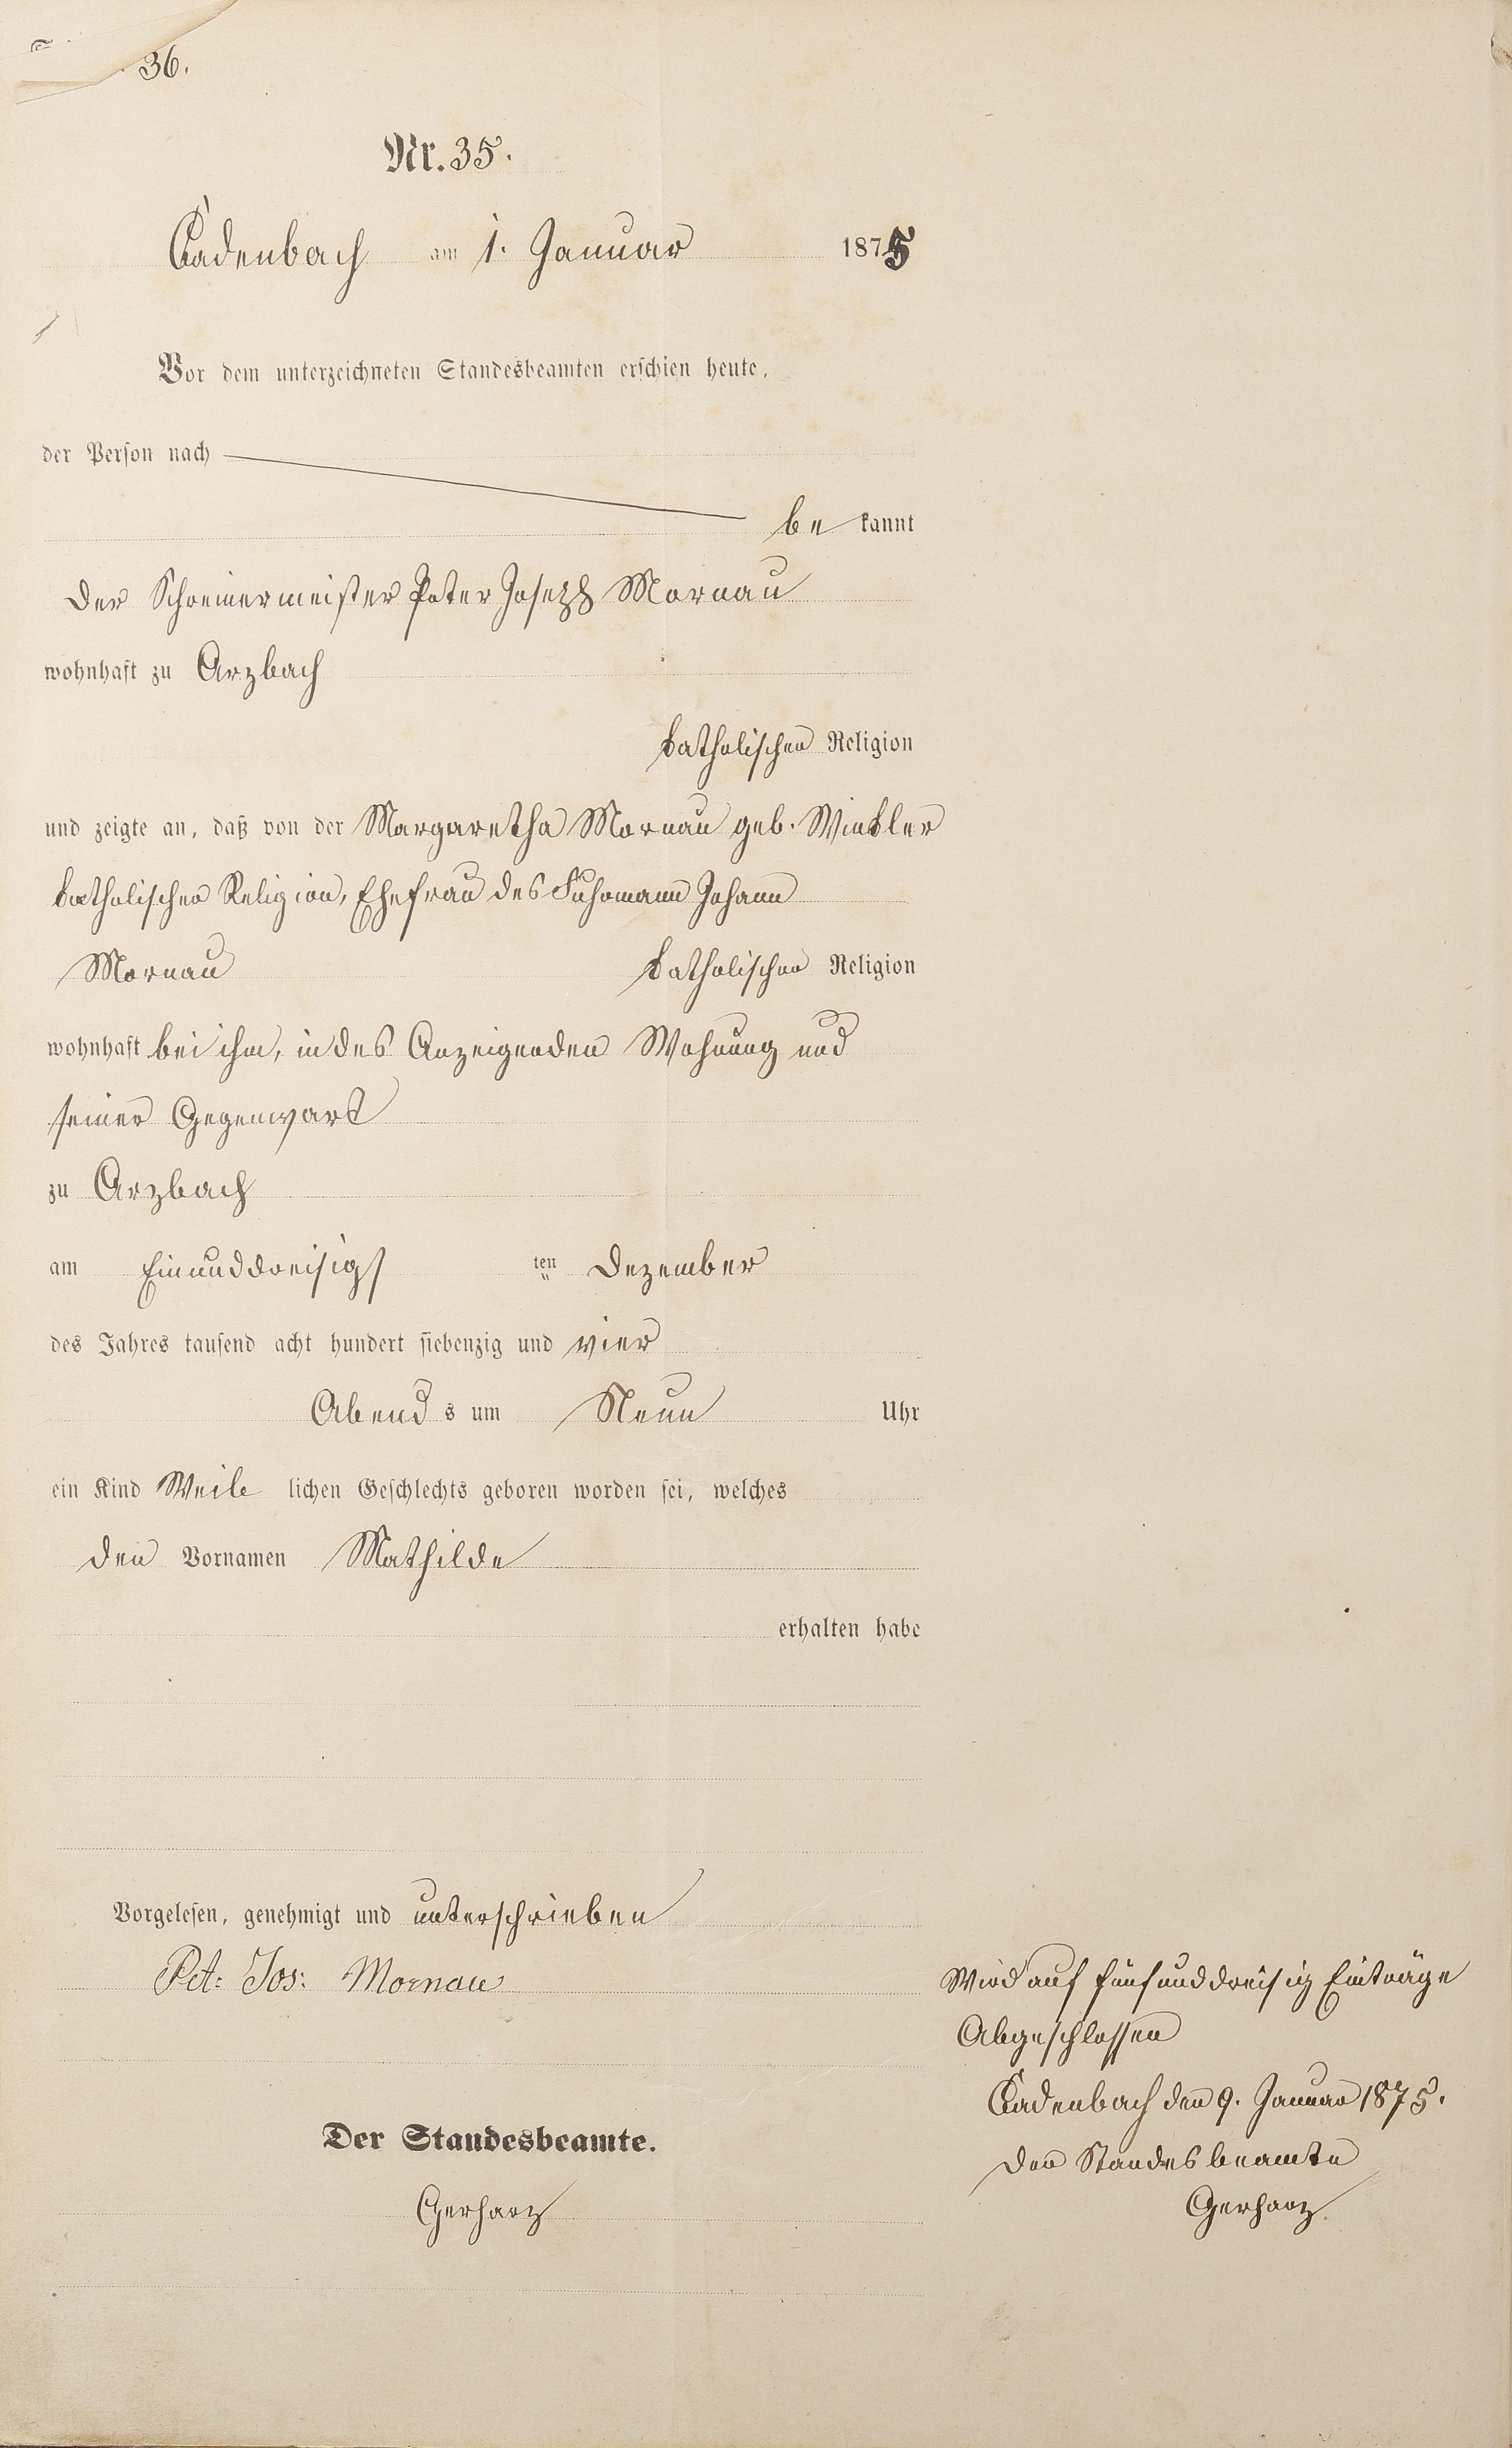 36.
Nr. 35.
Cadenbach am 1. Januar 1875
Vor dem unterzeichneten Standesbeamten erschien heute,
der Person nach
be kannt
der Schreinermeister Peter Joseph Mornau
wohnhaft zu Arzbach
katholischer Religion
und zeigte an, daß von der Margaretha Mornau geb. Winkler
katholischer Religion, Ehefrau des Fuhrmann Johann
Mornau katholischer Religion
wohnhaft bei ihm, in des Anzeigenden Wohnung und
seiner Gegenwart
zu Arzbach
am Einunddreisigs ten Dezember
des Jahres tausend acht hundert siebenzig und vier
Abend s um Neun Uhr
ein Kind Weib lichen Geschlechts geboren worden sei, welches
den Vornamen Mathilde
erhalten habe
Vorgelesen, genehmigt und unterschrieben
Pet: Jos: Mornau
Der Standesbeamte.
Gerharz
Wird auf fünfunddreisig Einträge
Abgeschlossen
Cadenbach den 9. Januar 1875.
Der Standesbeamte
Gerharz